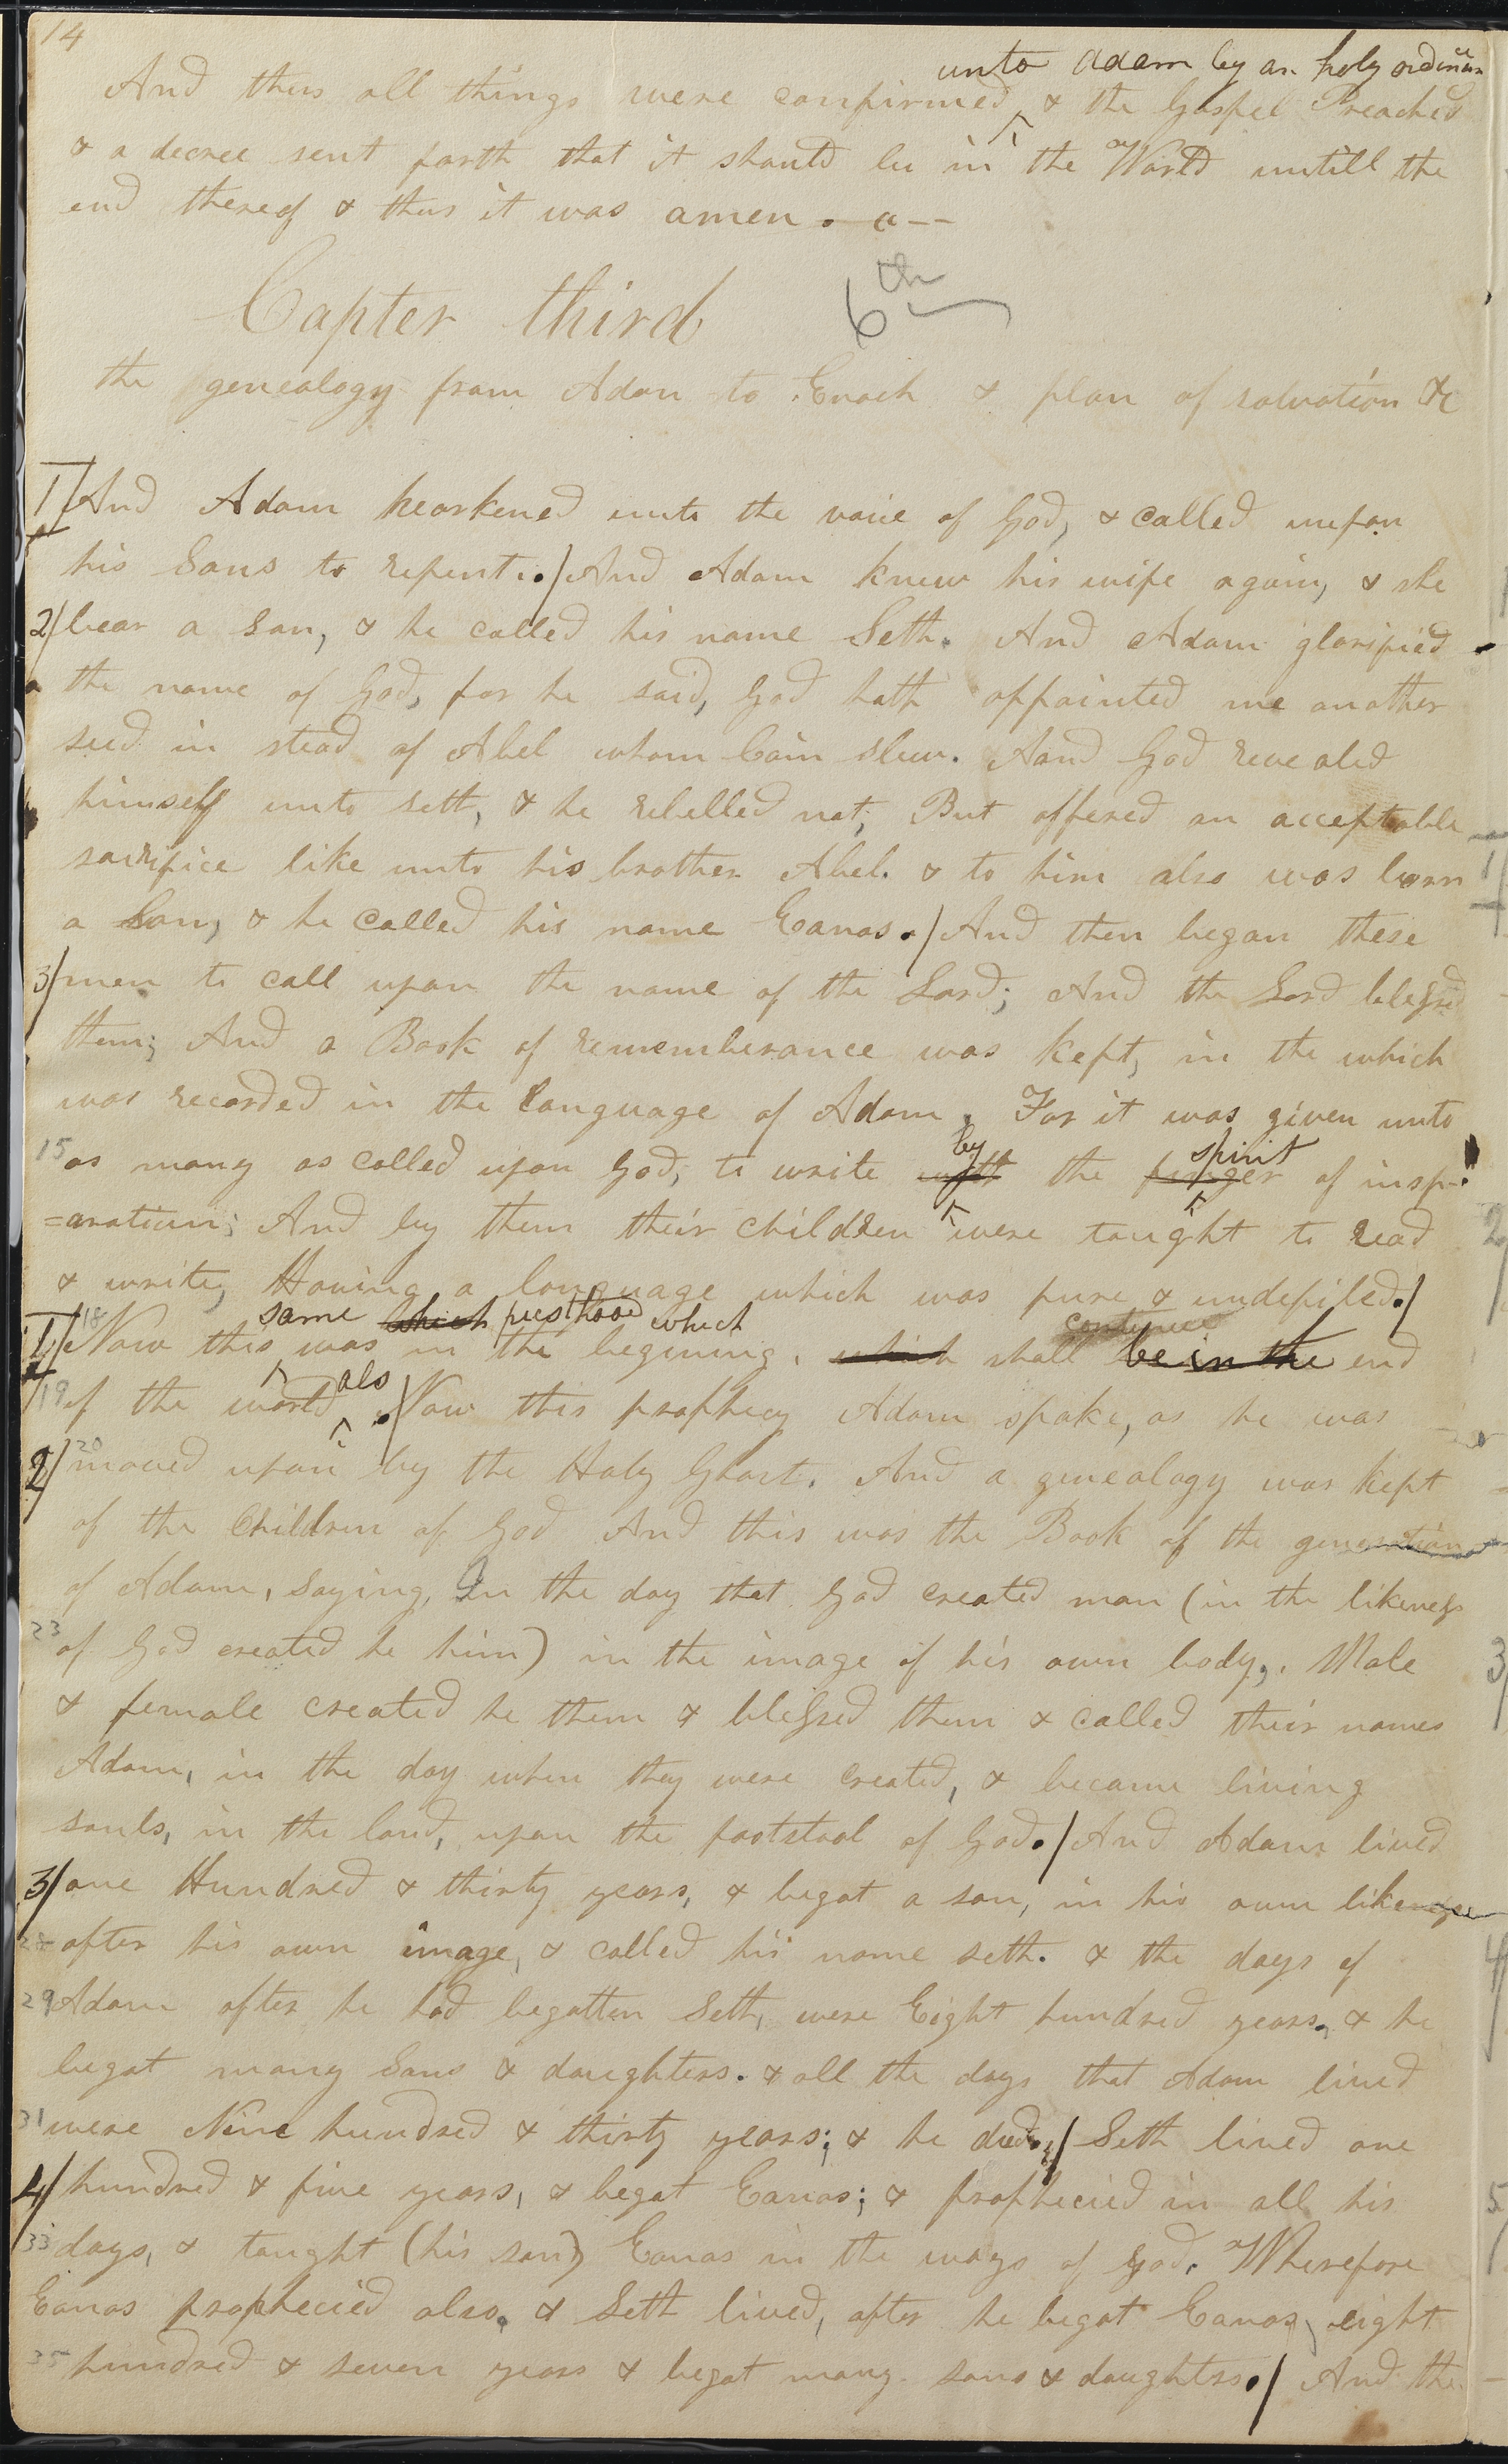 14
unto adam by an holy ordinance
And thus all things were confirmed & the Gospel Preached
& a decree sent forth that it should be in the World untill the
end thereof & thus it was amen. a--
Capter third 6th
the genealogy from Adam to Enoch & plan of salvation &c
1/ And Adam hearkened unto the voice of God, & called uupon
his Sons to repent./ And Adam knew his wife again, & she
2/ bear a son, & he called his name Seth. And Adam glorified
the name of God, for he said, God hath appointed me another
seed in stead of Abel whom Cain slew. Aand God revealed
himself unto seth, & he rebelled not; But offered an acceptable
sacrifice like unto his brother Abel. & to him also was born
a Son, & he called his name Eanos./ And then began these
3/ men to call upon the name of the Lord; And the Lord blessed
them; And a Book of rememberance was kept, in the which
was recorded in the language of Adam. For it was given unto
by spirit
15 as many as called upon God, to write with the finger of insp-
=aration; And by them their children were taught to read
& write, Having a language which was pure & undefiled./
same which preisthood which continue
1/ 18 Now this was in the begining, which shall be in the end
als
19 of the world ./ Now this prophecy Adam spake, as he was
2/ 20 moved upon by the Holy Ghost. And a genealogy was kept
of the children of God And this was the Book of the generations
of Adam, saying, In the day that God created man (in the likeness
23 of God created he him) in the image of his own body,. Male
& female created he them & blessed them & called their names
Adam, in the day when they were created, & became living
souls, in the land, upon the footstool of God./ And Adam lived
3/ one Hundred & thirty years, & begat a son, in his own likeness
28 after his own image, & called his name seth. & the days of
29 Adam after he had begotten Seth, were Eight hundred years, & he
begat many Sons & daughters. & all the days that Adam lived
31 were Nine hundred & thirty years; & he died./ Seth lived one
4/ hundred & five years, & begat Eanos; & prophecied in all his
33 days, & taught (his son) Eanos in the ways of god. Wherefore
Eanos prophecied also, & Seth lived, after he begat Eanos, eight
35 hundred & seven years & begat many sons & daughters./ And the